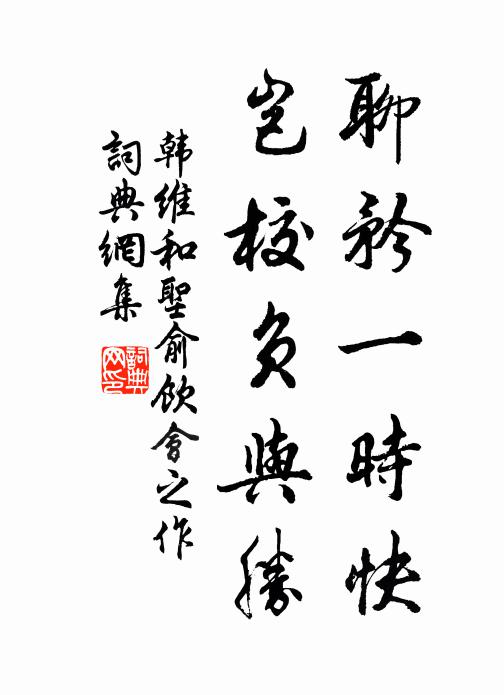 聊矜一時快
豈校負與勝
韩維和聖俞飲會之作
詞典網集
詞典网印